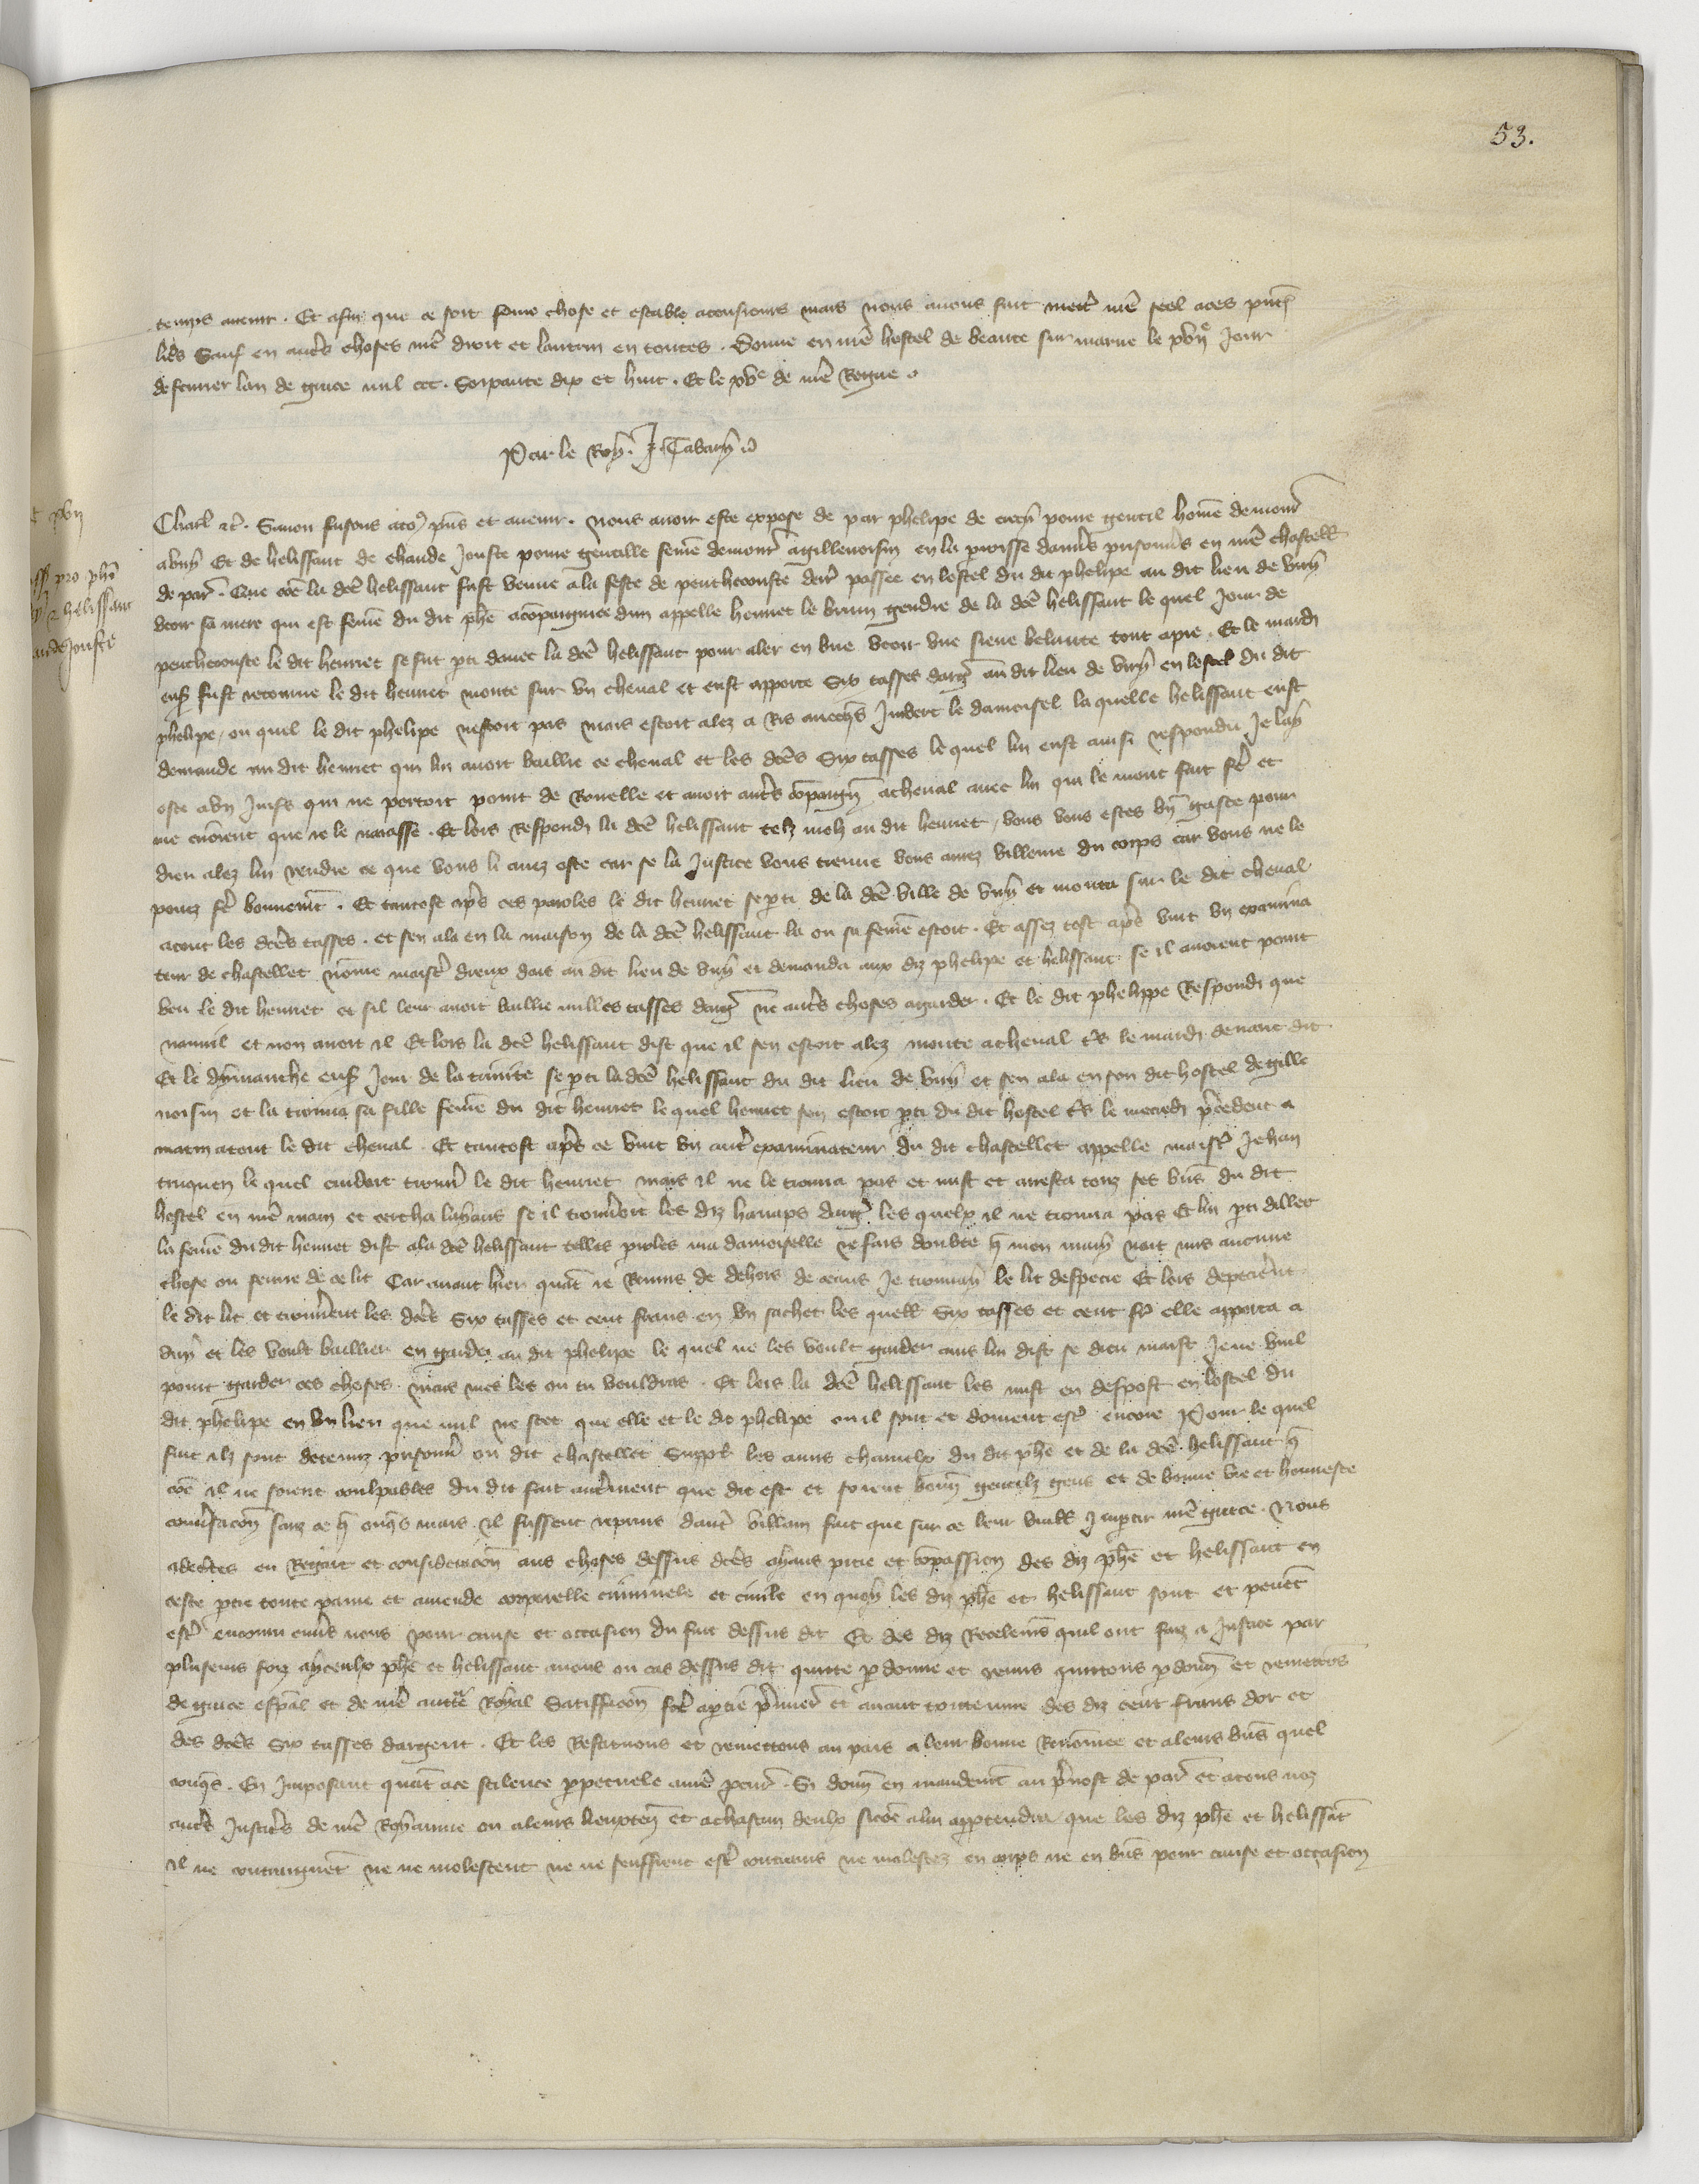 53.
temps avenir. Et afin que ce soit ferme chose et estable a tousiours mais nous avons fait mettr nr̄e seel a ces pn̄tes
lr̄es Sauf en autr̄s choses nr̄e droit et lautrui en toutes. Donne en nr̄e hostel de beaute sur marne le xviie Jour
de fevrier lan de grace mil ccc. Soixante dix et huit. Et le xve de nr̄e Regne
Par le Roy. J. Tabary
Charl etc. Savoir faisons a to9 pn̄s et avenir. nous avoir este expose de par phelipe de povre gentil hom̄e demour
a viry Et de helissant de chaude Jouste povre gentille fem̄e demour a gillevoisin en la parroisse prisonn̄rs en nr̄e chastell
de par. Que com̄e la dc̄e helissant fust venue a la feste de penthecouste derr passee en lostel du dit phelipe au dit lieu de viry
veoir sa mere qui est fem̄e du dit ph̄e acompaignee dun appelle henriet le brun gendre de la dc̄e helissant le quel Jour de
penthecouste le dit henriet se fut pti davec la dc̄e helissant pour aler en veoir une siene belante tout a pie. Et le mardi
ens fust retourne le dit henriet monte sur un cheval et eust apporte Six tasses darg au dit lieu de viry en lostel du dit
phelipe, ou quel le dit phelipe nestoit pas mais estoit alez a Ris avecqs Jmbert le damoisel la quelle helissant eust
demande au dit henriet qui lui avoit baillie ce cheval et les dc̄es Six tasses le quel lui eust ainsi respondu Je lay
oste a un Juifs qui ne portoit point de Rouelle et avoit autr̄s compaign a cheval avec lui qui le mont fait fr̄e et
me que je le . Et lors Respondi la dc̄e helissant telz moz au dit henriet, vous vous estes bn̄ gaste pour
dieu alez lui rendre ce que vous li avez oste car se la Justice vous tienne vous aurez villenie du corps car vous ne le
povez fr̄e bonnemt. Et tantost apr̄s ces paroles le dit henriet se pti de la dc̄e ville de viry et monta sur le dit cheval
atout les dc̄es tasses. et sen ala en la maison de la dc̄e helissant la ou sa fem̄e estoit. Et assez tost apr̄s vint un examina
teur de chastellet nom̄e maistr̄ dreux au dit lieu de viry et demanda aux diz phelipe et helissant se il avoient point
veu le dit henriet et sil leur avoit baillie nulles tasses darg ne autr̄s choses a garder. Et le dit phelippe Respondi que
nennil et non avoit il Et lors la dc̄e helissant dist que il sen estoit alez monte a cheval des le mardi devant dit
Et le dymanche ens Jour de la trinite se pti la dc̄e helissant du dit lieu de viry et sen ala en son dit hostel de gille
voisin et la trouva sa fille fem̄e du dit henriet le quel henriet sen estoit pti du dit hostel des le mecredi pr̄cedent a
matin atout le dit cheval. Et tantost apr̄s ce vint un autr̄ examinateur du dit chastellet appelle maistr̄ Jehan
truquen le quel cuidoit trouv̄ le dit henriet mais il ne le trouva pas et mist et arresta touz ses bn̄s du dit
hostel en nr̄e main et cercha leans se il trouv̄oit les diz hanaps darg les quelx il ne trouva pas Et lui pti dillec
la fem̄e du dit henriet dist a la dc̄e helissant telles proles ma damoiselle je fais doubte q̄ mon mary nait mis aucune
chose ou feurre de ce lit Car avant hier quāt je Revins de dehors de ceans Je trouvay le lit despecie Et lors depecier̄nt
le dit lit et trouv̄rent les dc̄es Six tasses et cent frans en un sachet les quelles Six tasses et cent fr̄ elle apporta a
viry et les voult baillier en garder au dit phelipe le quel ne les voult garder ains lui dist se dieu maist Je ne vueil
point garder ces choses mais mes les ou tu vouldras. Et lors la dc̄e helissant les mist en despost en lostel du
dit phelipe en un lieu que nul ne scet que elle et le dit phelipe ou il sont et doivent estr̄ encore Pour le quel
fait ilz sont detenuz prisonn̄ ou dit chastellet Supplt les amis charnelx du dit ph̄e et de la dc̄e helissant q̄
com̄e il ne soient coulpables du dit fait autr̄ment que dit est et soient bonn̄ gentilz gens et de bonne vie et honneste
conv̄sacōn sanz ce q̄ onqs mais il fussent repris dautr̄ villain fait que sur ce leur vueill Jmpartir nr̄e grace. Nous
adecctes en Regart et consideracōn aus choses dessus dc̄es ayans pitie et cōpassion des diz ph̄e et helissant en
ceste ptie toute paine et amende corporelle criminele et civile en quoy les diz ph̄e et helissant sont et pevēt
estr̄ encouru env̄s nous pour cause et occasion du fait dessus dit Et des diz Recelemēs quil ont faiz a Justice par
pluseurs foiz a yceulx ph̄e et helissant avons ou cas dessus dit quitte pdonne et remis quittons pdonn̄ et remettōs
de grace espāl et de nr̄e auctē Royal Satisfacōn fcē a ptie p̄mier̄ et avant toute euvre des diz cent frans dor et
des dc̄es Six tasses dargent. Et les Restituons et remettons au pais a leur bonne Renōmee et a leurs bn̄s quel
conqs. En Jmposant quāt a ce scilence ppetuele a nr̄e procur̄. Si donn̄ en mandemēt au p̄vost de par et a touz noz
autr̄s Justic̄s de nr̄e Royaume ou a leurs lieuxten̄ et a chascun deulx sicom̄e a lui apptendra que les diz ph̄e et helissāt
il ne contraignent ne ne molestent ne ne seuffrent estr̄ contrains ne molestez en corps ne en bn̄s pour cause et occasion